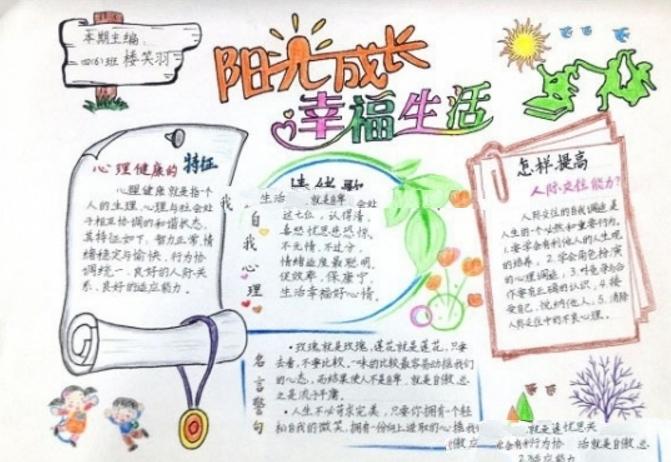 本期主编:
四(6)班 楼笑羽
阳光成长
幸福生活
心理健康的特征
心理健康就是指个
人的生理、心理与社会处
于相互协调的和谐状态,
其特征如下:智力正常,情
绪稳定与愉快,行为协
调统一,良好的人际关
系,良好的适应能力。
自我心理
生活 就是自卑
这七位,认得清,
喜怒忧思悲恐惊,
不无情,不过分,
情绪适度最聪明,
促效率,保康宁,
生活幸福好心情。
怎样提高
人际交往能力?
人际交往的自我调适是
人生的一个必然和重要行为。
1.要学会有利他人的人生观
的培养,2.学会角色扮演
的心理调适,3.对竞争与合
作要有正确的认识,4.接
受自己,悦纳他人;5.消除
人际交往中的不良心理。
名言警句
·玫瑰就是玫瑰,莲花就是莲花,只要
去看,不要比较。一味的比较最容易动摇我们
的心态,而结果使人不是自卑,就是自傲,总
之是流于平庸。
·人生不必苛求完美,只要你拥有一个轻
松自我的微笑,拥有一份向上进取的心